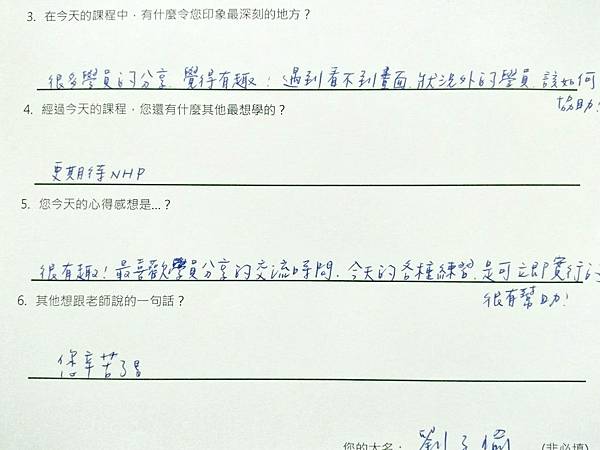 3. 在今天的課程中，有什麼令您印象最深刻的地方？
很多學員的分享，覺得有趢！遇到看不到畫面，狀況外的學員，該如何
協助！
4. 經過今天的課程，您還有什麼其他最想學的？
更期待NHP
5. 您今天的心得感想是...？
很有趣！最喜歡學員分享的交流時間，今天的各種練習，是可立即實行的
很有幫助！
6. 其他想跟老師說的一句話？
您辛苦了
您的大名：劉子
(非必填)